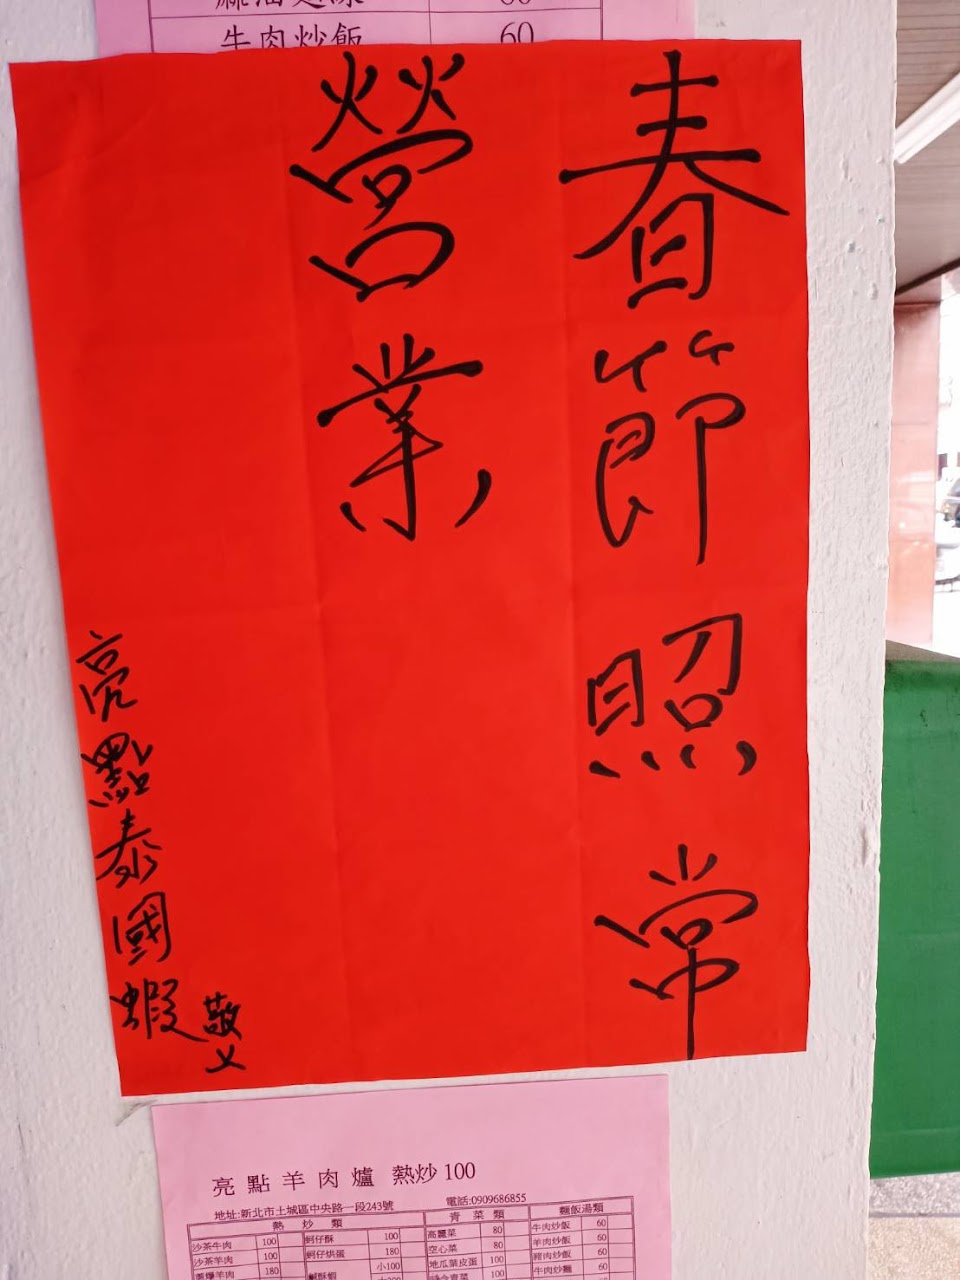 牛肉炒飯 60
春節照常
營業
亮點泰國蝦
敬上
亮點羊肉爐 熱炒100
地址:新北市土城區中央路一段243號 電話:0909686855
熱炒類 青菜類 麵飯湯類
沙茶牛肉 100 蚵仔酥 100 高麗菜 80 牛肉炒飯 60
沙茶羊肉 100 蚵仔烘蛋 180 空心菜 80 羊肉炒飯 60
蔥爆羊肉 180 小100 地瓜葉皮蛋 100 豬肉炒飯 60
鹹酥蝦 100 牛肉炒麵 60